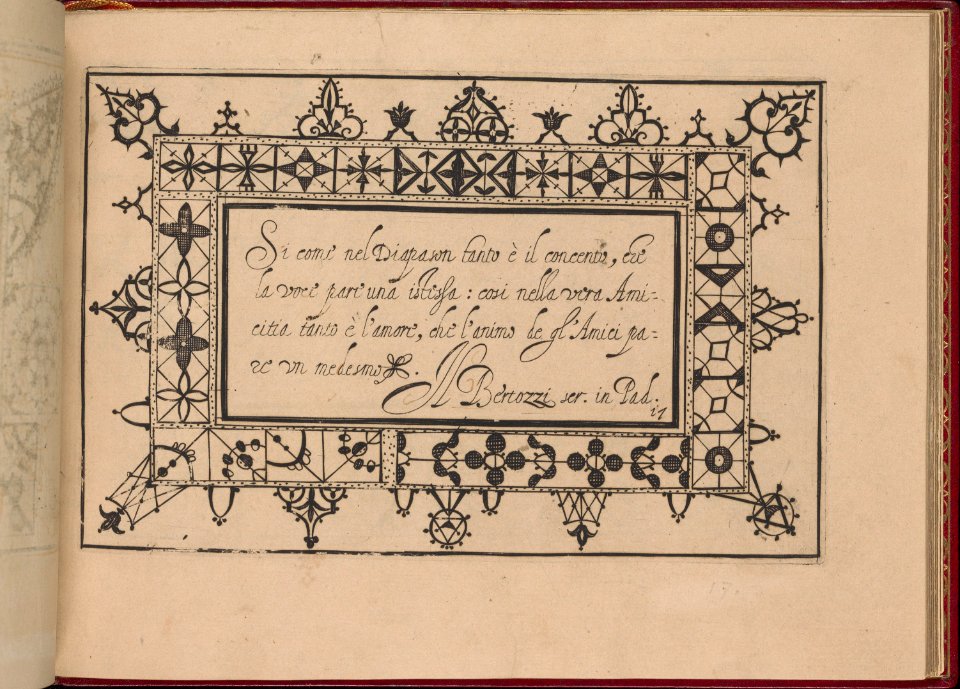 Si come nel Diapason tanto è il concento, che
la voce pare una istessa: cosi nella vera Ami-
citia tanto è l'amore, che l'animo de gl'Amici pa-
re vn medesmo.
Il Bertozzi scr. in Pad.
17
17.